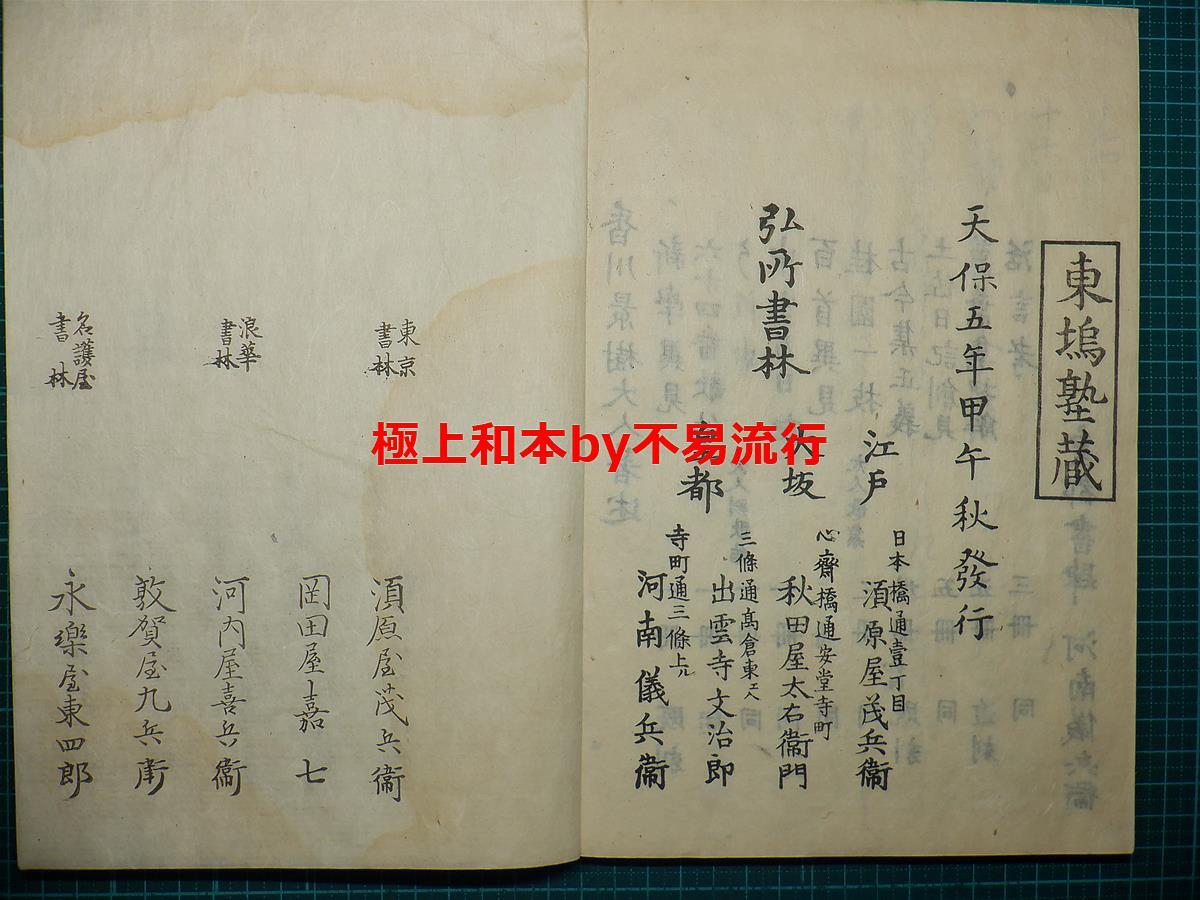 東塢塾蔵
天保五年甲午秋發行
弘所書林
江戸
日本橋通壹丁目
須原屋茂兵衞
大坂
心齋橋通安堂寺町
秋田屋太右衞門
京都
三條通高倉東入
出雲寺文治郎
寺町通三條上ル
河南儀兵衞
東京
書林
須原屋茂兵衞
岡田屋嘉七
浪華
書林
河内屋喜兵衞
敦賀屋九兵衞
名護屋
書林
永樂屋東四郎
極上和本by不易流行